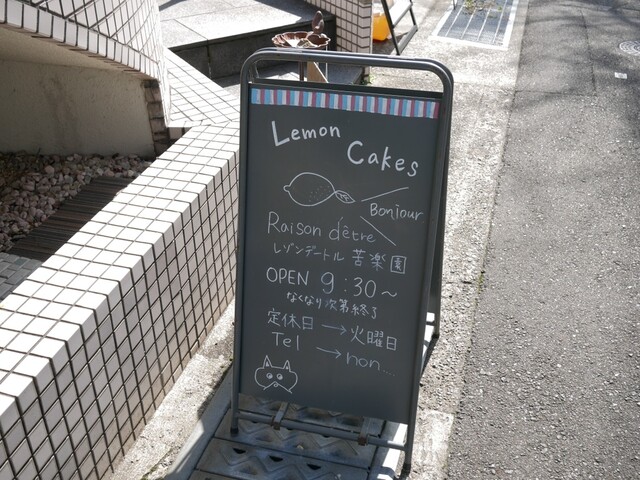 Lemon
Cakes
Bonjour
Raison d'être
レゾンデートル 苦楽園
OPEN 9:30～
なくなり次第終了
定休日→火曜日
Tel → non....